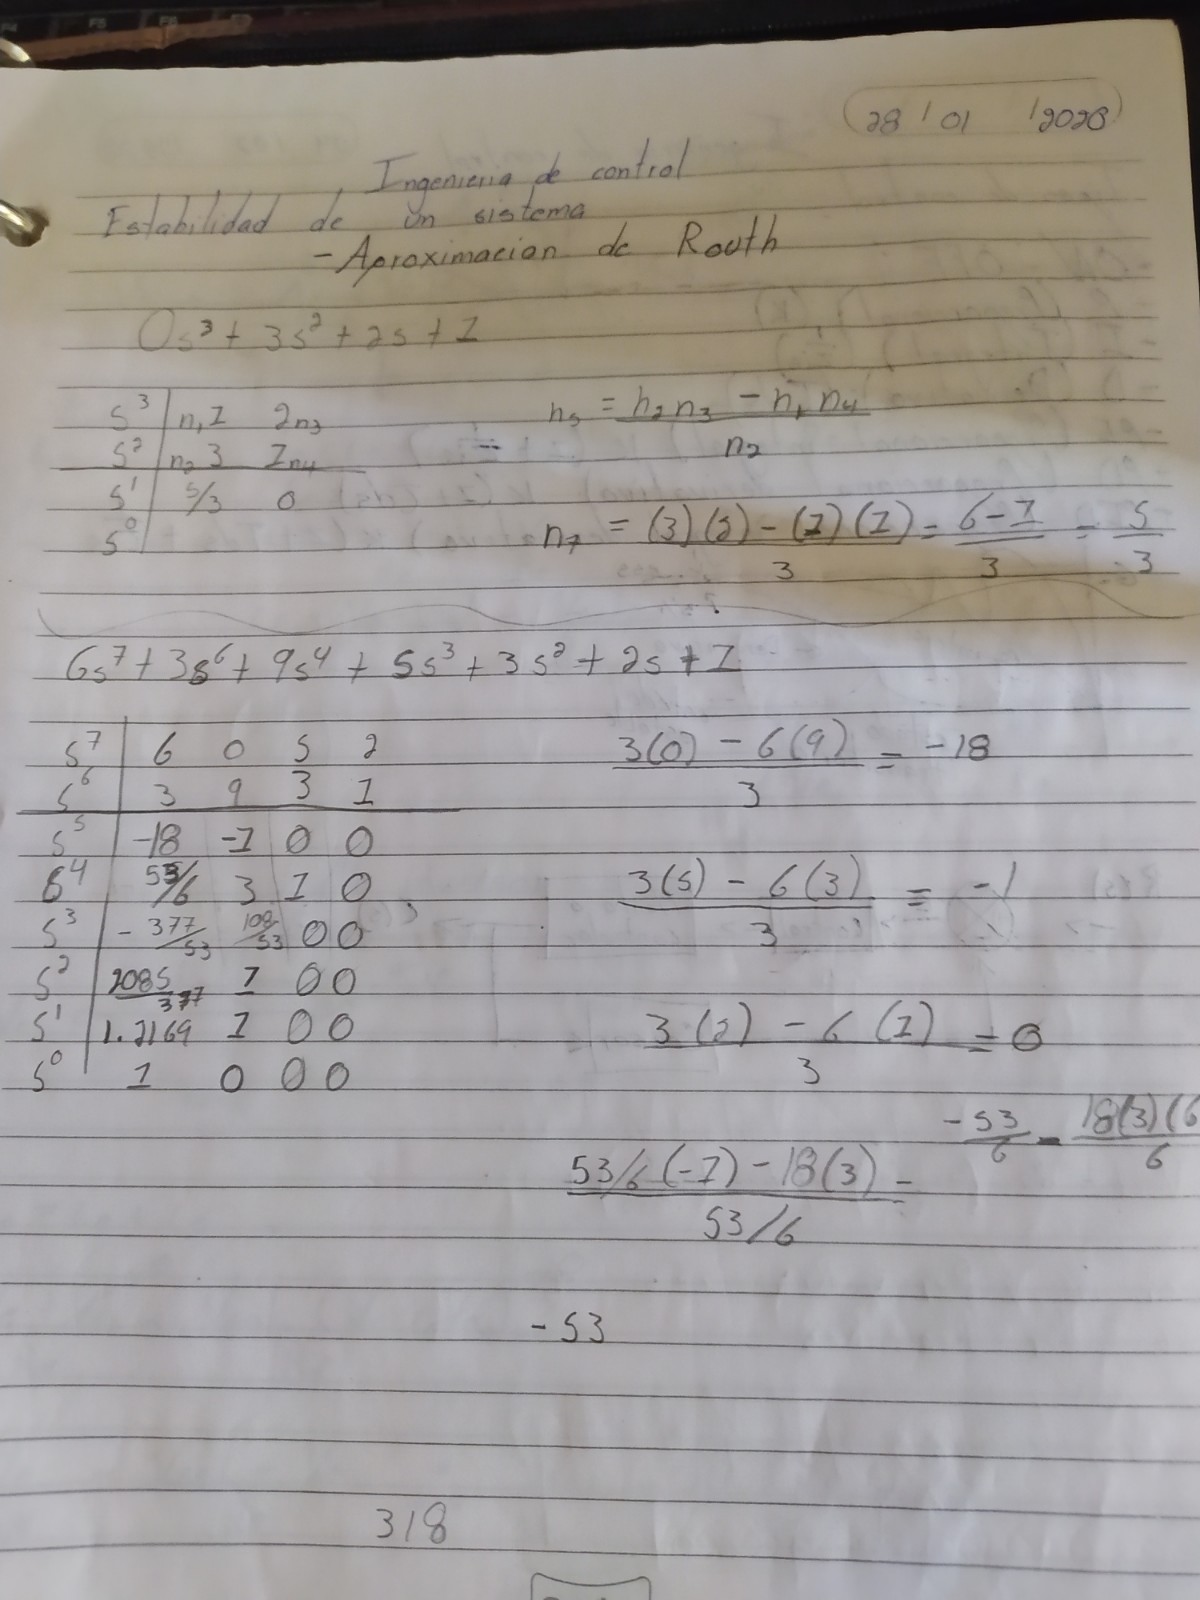 28 / 01 / 2026
Ingenieria de control
Estabilidad de un sistema
- Aproximacion de Routh
0s³ + 3s² + 2s + 1
s³ | n₁1 2n₃
s² | n₂3 1n₄
s¹ | 5/3 0
s⁰ |
n₅ = (n₂n₃ - n₁n₄) / n₂
n₇ = ((3)(2) - (1)(1)) / 3 = (6-1) / 3 = 5 / 3
6s⁷ + 3s⁶ + 9s⁴ + 5s³ + 3s² + 2s + 1
s⁷ | 6 0 5 2
s⁶ | 3 9 3 1
s⁵ | -18 -1 0 0
s⁴ | 53/6 3 1 0
s³ | -377/53 108/53 0 0
s² | 2085/377 1 0 0
s¹ | 1.2169 1 0 0
s⁰ | 1 0 0 0
(3(0) - 6(9)) / 3 = -18
(3(5) - 6(3)) / 3 = -1
(3(2) - 6(1)) / 3 = 0
(53/6(-1) - 18(3)) / (53/6) =
-53/6 - 18(3)(6 / 6
-53
318